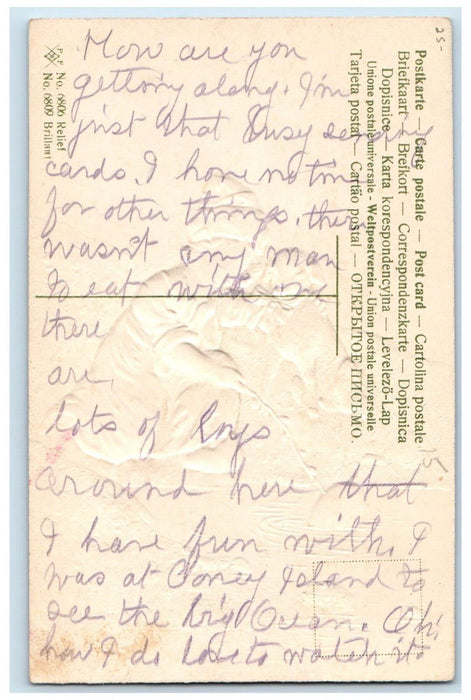 How are you
getting along. I'm
just that busy sending
cards. I have no time
for other things. there
wasn't any man
to eat with me
there
are,
lots of boys
around here that
I have fun with. I
was at Coney Island to
see the big Ocean. Oh!
how I do love to watch it.
Postkarte — Carte postale — Post card — Cartolina postale
Briefkaart — Brefkort — Correspondenzkarte — Dopisnica
Dopisnice — Karta korespondencyjna — Levelező-Lap
Unione postale universale - Weltpostverein - Union postale universelle
Tarjeta postal — Cartão postal — ОТКРЫТОЕ ПИСЬМО.
No. 6806 Relief
No. 6809 Brillant
25-